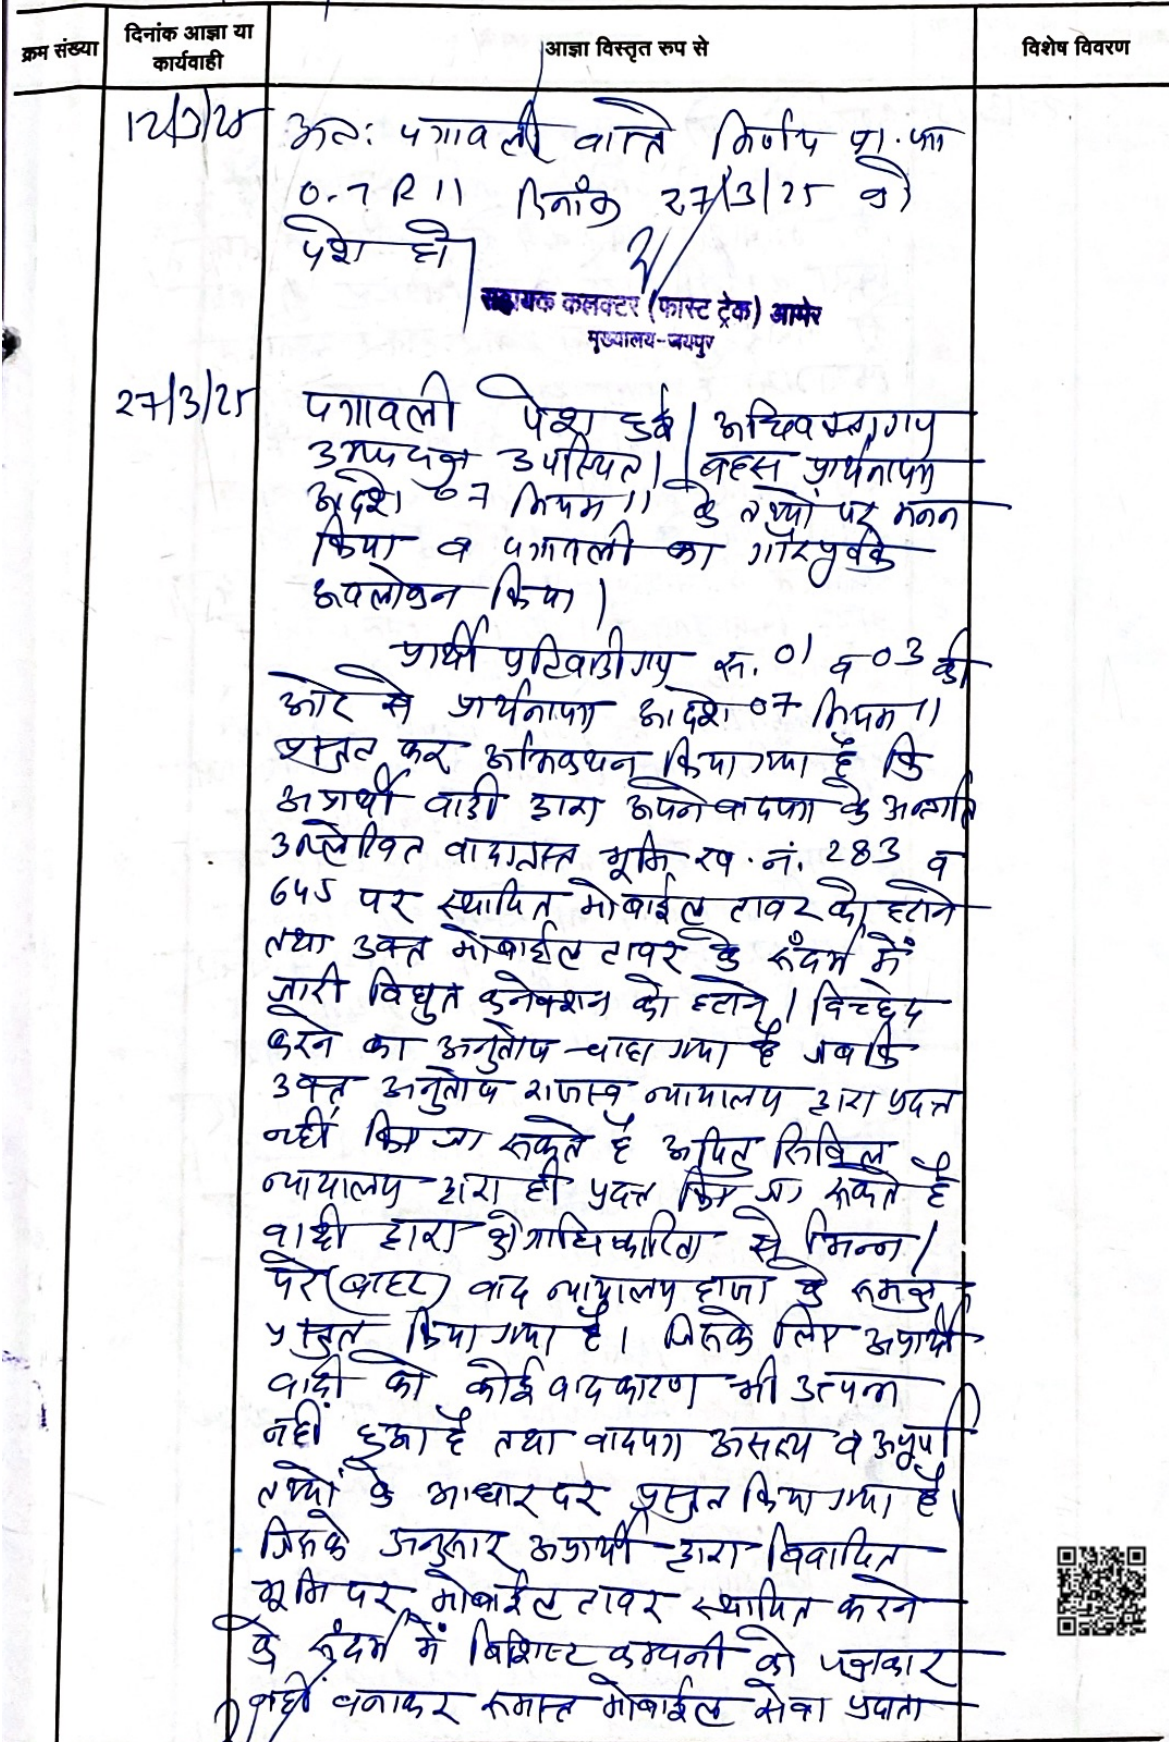 क्रम संख्या
दिनांक आज्ञा या कार्यवाही
आज्ञा विस्तृत रुप से
विशेष विवरण
12/3/25
अतः पत्रावली वास्ते निर्णय प्रा. पत्र
0.7 R 11 दिनाँक 27/3/25 को
पेश हो
सहायक कलक्टर (फास्ट ट्रेक) आमेर
मुख्यालय-जयपुर
27/3/25
पत्रावली पेश हुई। अधिवक्तागण
उभयपक्ष उपस्थित। बहस प्रार्थनापत्र
आदेश 07 नियम 11 के तथ्यों पर मनन
किया व पत्रावली का गौरपूर्वक
अवलोकन किया।
प्रार्थी प्रतिवादीगण सं. 01 व 03 की
ओर से प्रार्थनापत्र आदेश 07 नियम 11
प्रस्तुत कर अभिकथन किया गया है कि
अप्रार्थी वादी द्वारा अपने वादपत्र के अन्तर्गत
उल्लेखित वादग्रस्त भूमि ख. नं. 283 व
645 पर स्थापित मोबाईल टावर को हटाने
तथा उक्त मोबाईल टावर के संदर्भ में
जारी विधुत कनेक्शन को हटाने / विच्छेद
करने का अनुतोष चाहा गया है जबकि
उक्त अनुतोष राजस्व न्यायालय द्वारा प्रदत्त
नहीं किए जा सकते है अपितु सिविल
न्यायालय द्वारा ही प्रदत्त किए जा सकते है
वादी द्वारा क्षेत्राधिकारिता से भिन्न /
परे (बाहर) वाद न्यायालय हाजा के समक्ष
प्रस्तुत किया गया है। जिसके लिए अप्रार्थी
वादी को कोई वाद कारण भी उत्पन्न
नहीं हुआ है तथा वादपत्र असत्य व अपूर्ण
तथ्यों के आधार पर प्रस्तुत किया गया है।
जिसके अनुसार अप्रार्थी द्वारा विवादित
भूमि पर मोबाईल टावर स्थापित करने
के संदर्भ में विशिष्ट कम्पनी को पक्षकार
नहीं बनाकर समस्त मोबाईल सेवा प्रदाता